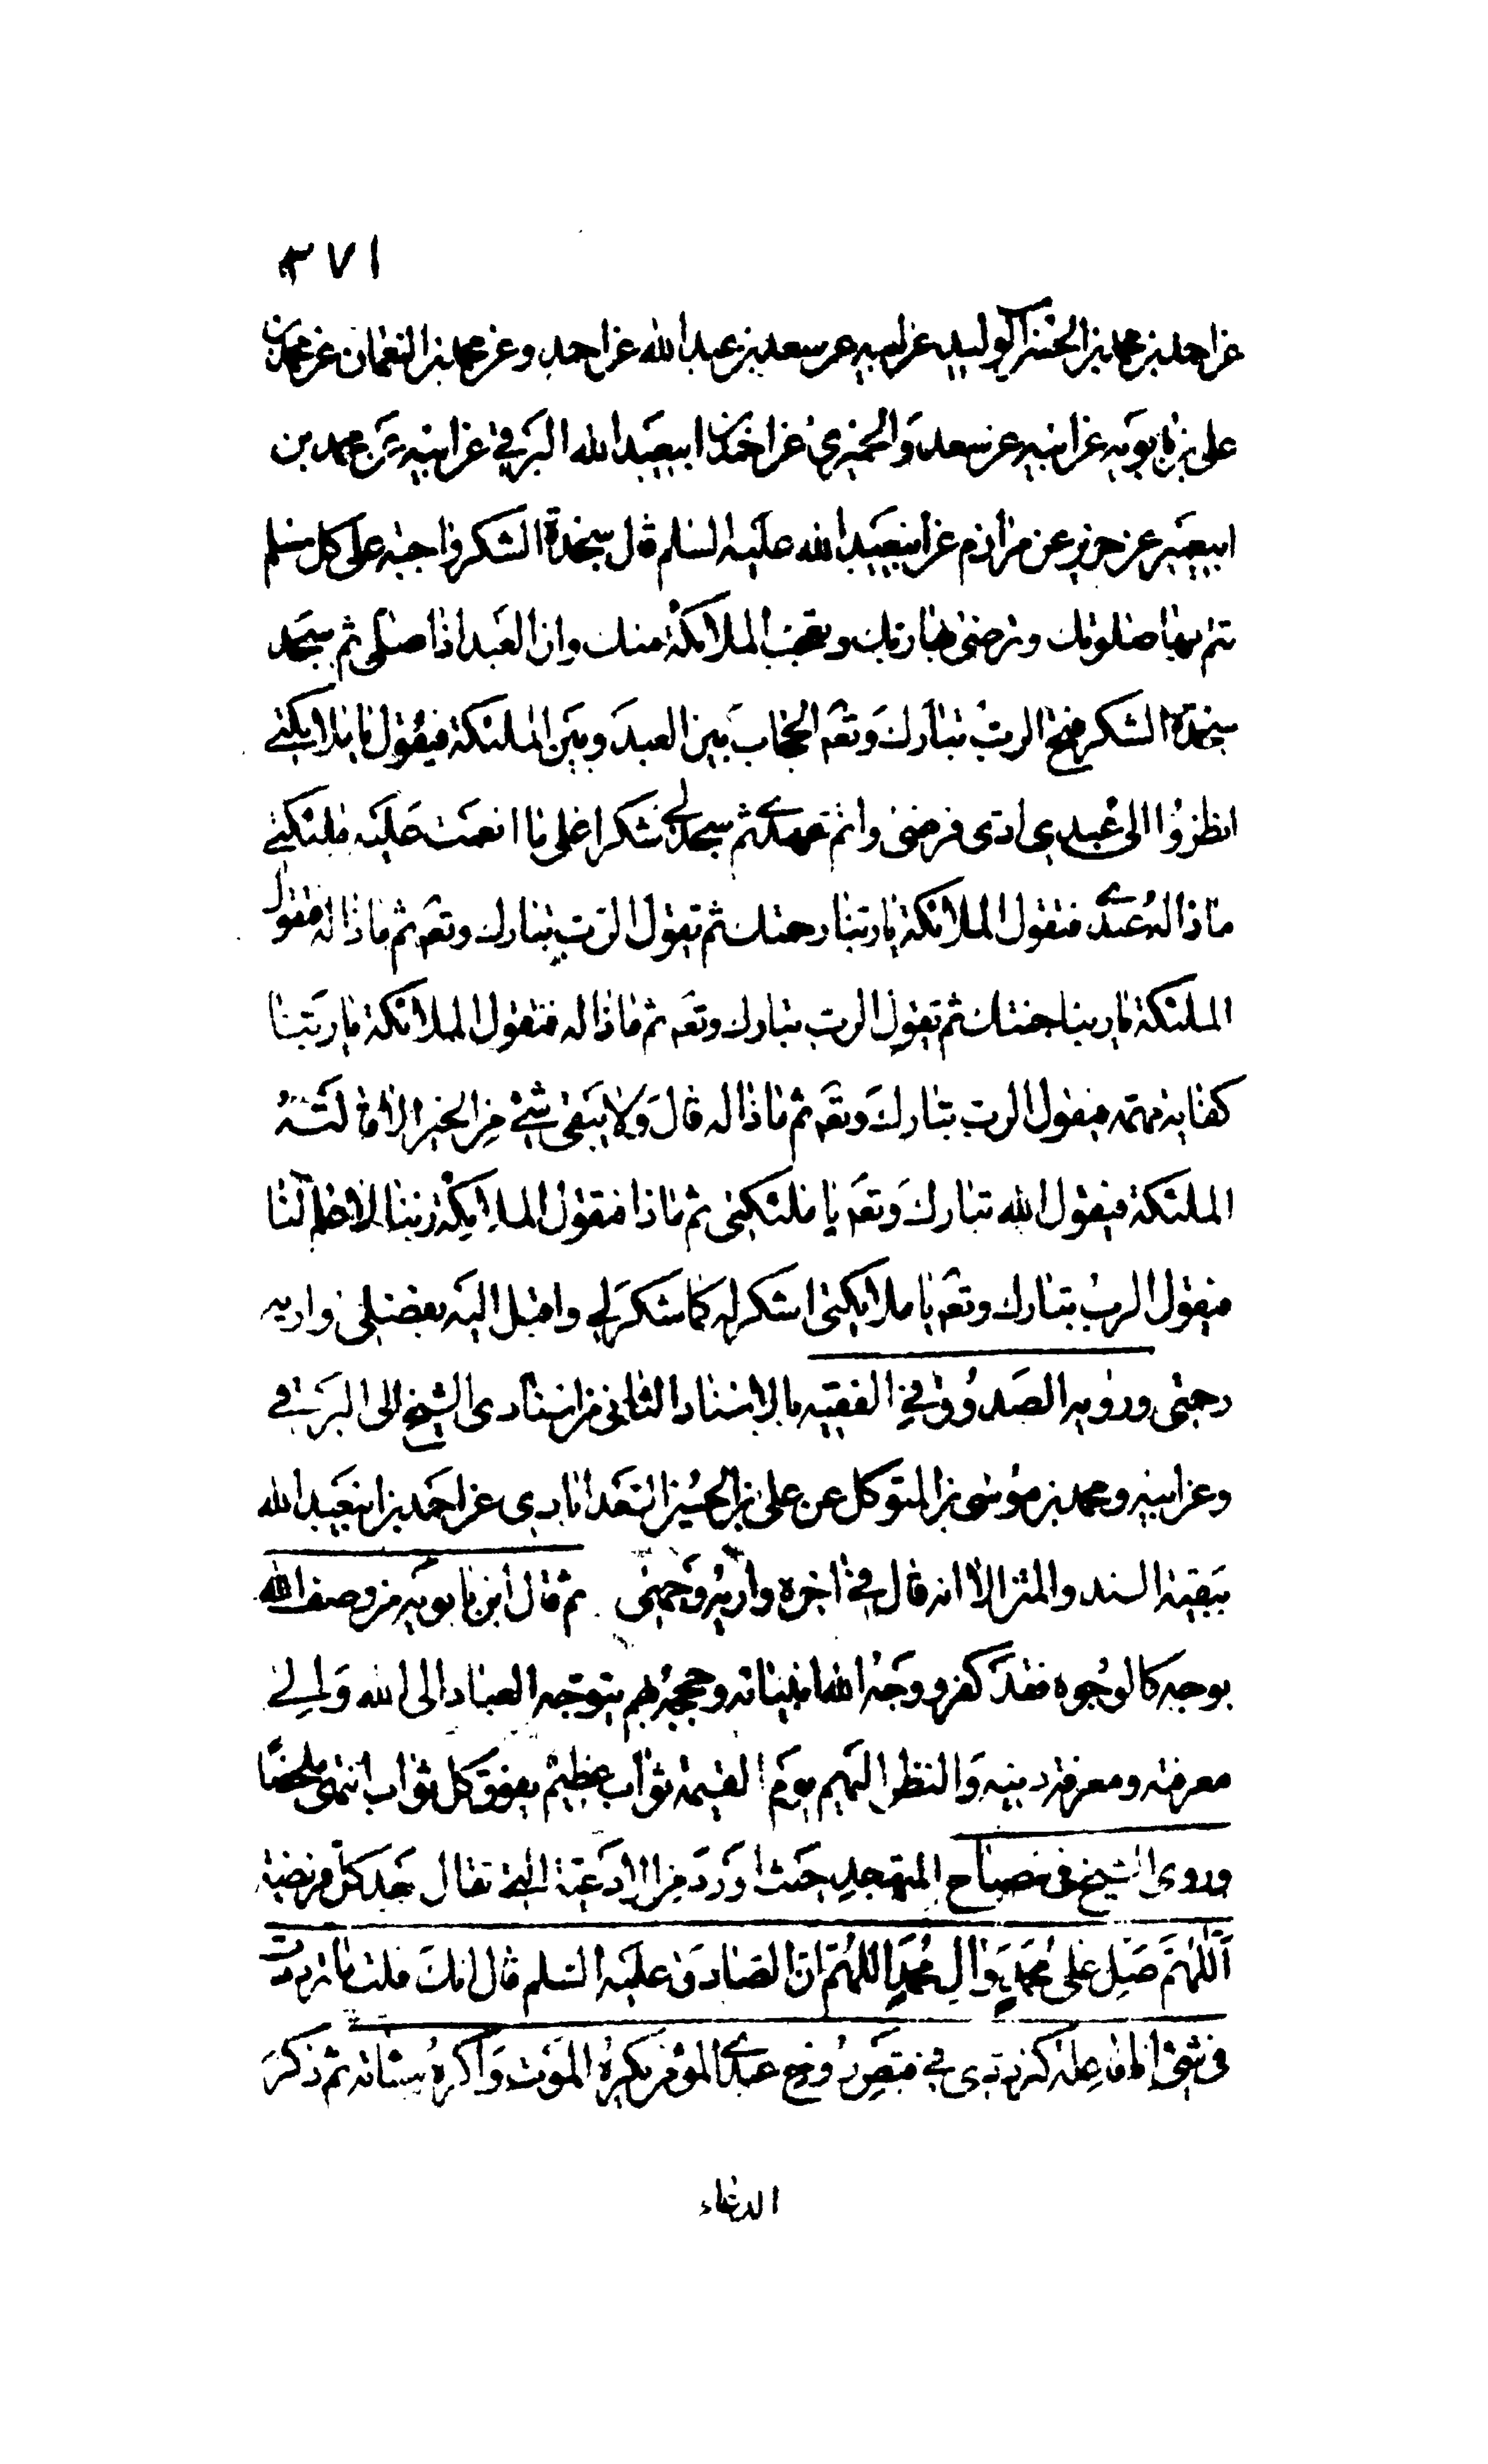 ٣٧١
عن احمد بن محمد بن الحسن الوليد عن ابيه عن سعد بن عبد الله عن احمد وعن محمد بن النعمان عن محمد بن
على بن بابويه عن ابيه عن سعد والحميرى عن احمد بن ابيعبد الله البرقى عن ابيه عن محمد بن
ابيعمير عن حريز عن مرازم عن ابيعبد الله عليه السلم قال سجدة الشكر واجبة على كل مسلم
تتم بها صلوتك وترضى بها ربك وتعجب الملائكة منك وان العبد اذا صلى ثم سجد
سجدة الشكر فتح الرب تبارك وتعه الحجاب بين العبد وبين الملئكة فيقول يا ملائكتى
انظروا الى عبدى ادى فرضى واتم عهدى ثم سجد لى شكرا على ما انعمت عليه ملئكتى
ماذا له عندى فتقول الملائكة يا ربنا رحمتك ثم يقول الرب تبارك وتعه ثم ماذا له فتقول
الملئكة يا ربنا جنتك ثم يقول الرب تبارك وتعه ثم ماذا له فتقول الملائكة يا ربنا
كفاية مهمه فيقول الرب تبارك وتعه ثم ماذا له قال ولا يبقى شئ من الخير الا قالته
الملئكة فيقول الله تبارك وتعه يا ملئكتى ثم ماذا فتقول الملائكة ربنا لا علم لنا
فيقول الرب تبارك وتعه يا ملائكتى اشكر له كما شكر لى واقبل اليه بفضلى واريه
رحمتى ورويه الصدوق فى الفقيه بالاسناد الثانى من اسنادى الشيخ الى البرقى
وعن ابيه ومحمد بن موسى بن المتوكل عن على بن الحسين السعدابادى عن احمد بن ابيعبد الله
ببقية السند والمتن الا انه قال فى اخره واريه وجهى ثم قال ابن بابويه من وصف الله
بوجه كالوجوه فقد كفر ووجه الله انبيائه وحججه بهم يتوجه العباد الى الله والى
معرفته ومعرفة دينه والنظر اليهم يوم القيمة ثواب عظيم يفوق كل ثواب انتهى ملخصا
وروى الشيخ فى مصباح المتهجد حيث اورد من الادعية التى تقال بعد كل فريضة
اللهم صل على محمد وال محمد اللهم ان الصادق عليه السلم قال انك قلت ما ترددت
فى شئ انا فاعله كترددى فى قبض روح عبدى المؤمن يكره الموت واكره مسائته ثم ذكر
الدعاء